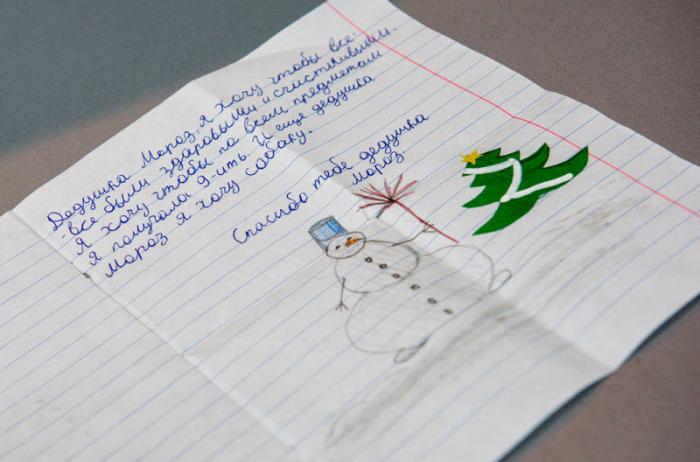 Дедушка Мороз, я хочу чтобы все-
-все были здоровыми и счастливыми.
Я хочу чтобы по всем предметам
я получала 9-ить. И еще дедушка
Мороз я хочу собаку.
Спасибо тебе дедушка
Мороз.